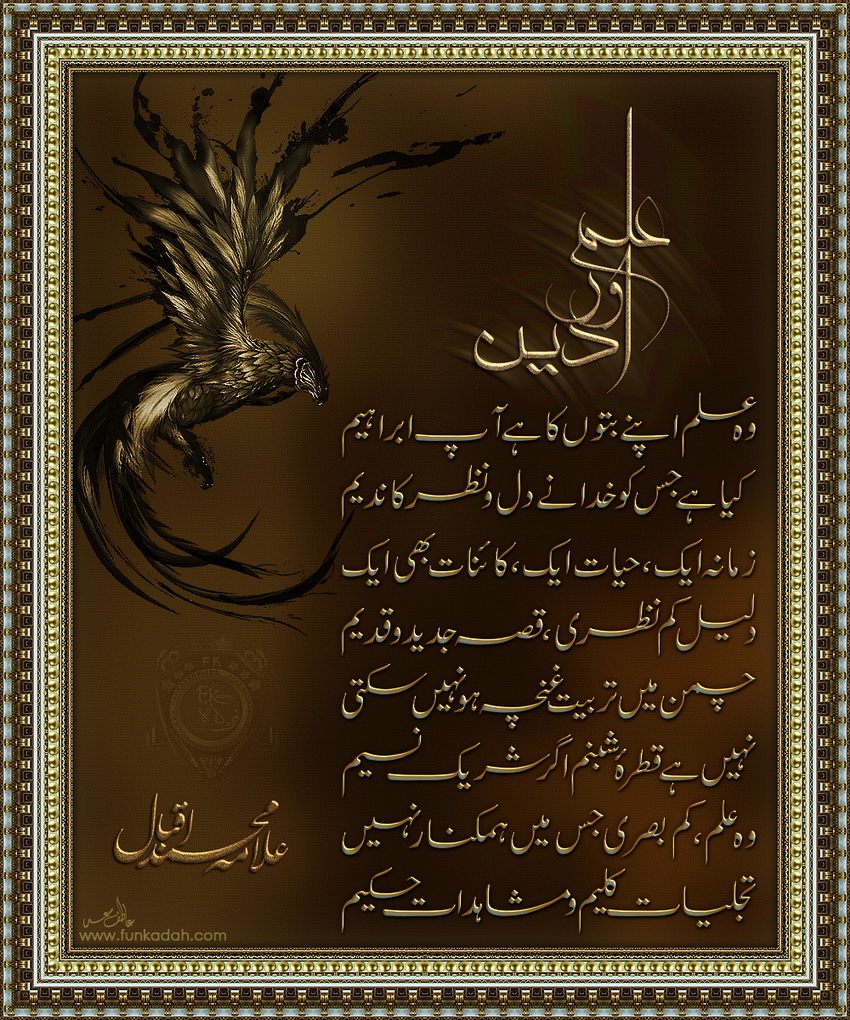 علم
اور
دین
وہ علم اپنے بتوں کا ہے آپ ابراہیم
کیا ہے جس کو خدا نے دل و نظر کا ندیم
زمانہ ایک، حیات ایک، کائنات بھی ایک
دلیل کم نظری، قصہ جدید و قدیم
چمن میں تربیت غنچہ ہو نہیں سکتی
نہیں ہے قطرۂ شبنم اگر شریک نسیم
وہ علم، کم بصری جس میں ہمکنار نہیں
تجلیات کلیم و مشاہدات حکیم
علامہ محمد اقبال
FK
www.funkadah.com